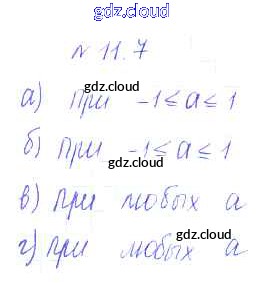 gdz.cloud
№ 11.7
gdz.cloud
а) при -1 ≤ a ≤ 1
б) при -1 ≤ a ≤ 1
gdz.cloud
в) при любых a
gdz.cloud
г) при любых a